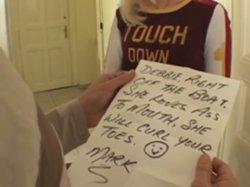 TOUCH
DOWN
DEBBIE, RIGHT
OFF THE BOAT.
SHE LOVES ASS
TO MOUTH, SHE
WILL CURL YOUR
TOES. ☺
MARK